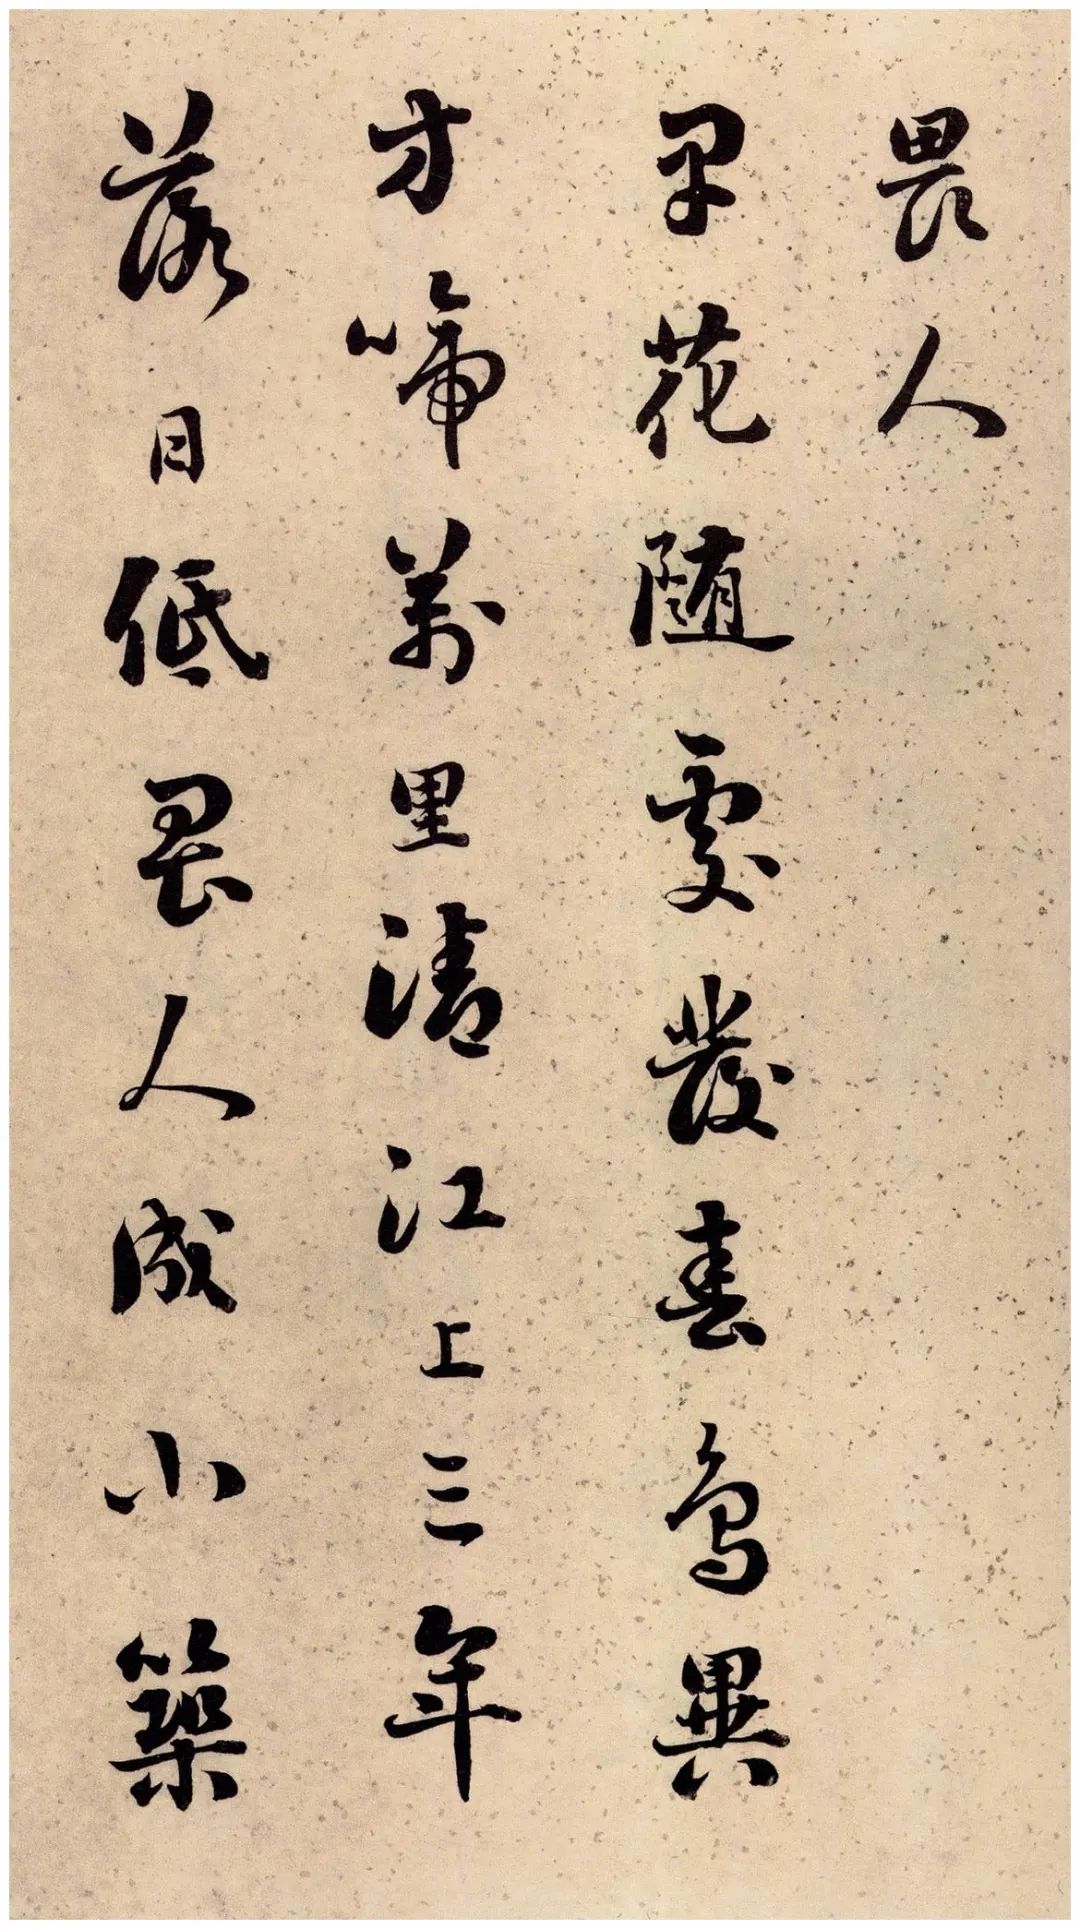 畏人
早花随處發春鳥異
方啼萬里清江上三年
落日低畏人成小築